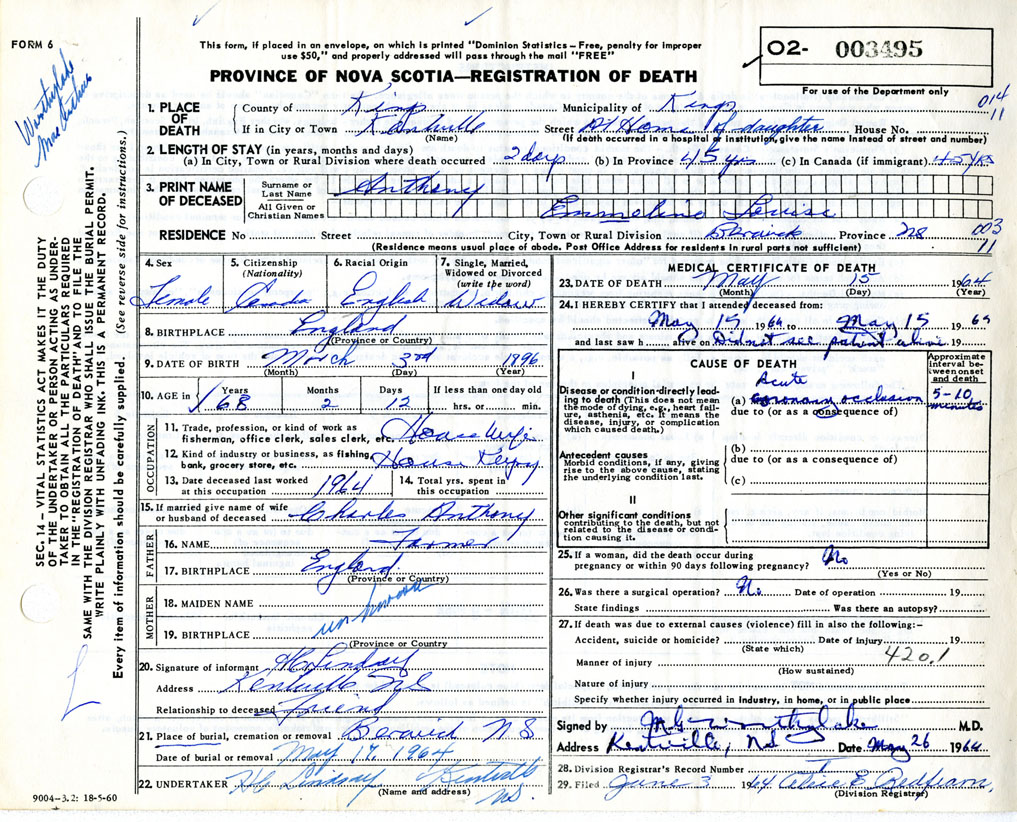 FORM 6
This form, if placed in an envelope, on which is printed "Dominion Statistics – Free, penalty for improper
use $50," and properly addressed will pass through the mail "FREE"
PROVINCE OF NOVA SCOTIA—REGISTRATION OF DEATH
O2- 003495
For use of the Department only
014
11
1. PLACE OF DEATH
County of Kings Municipality of Kings
If in City or Town Kentville Street At Home of daughter House No.
(Name) (If death occurred in a hospital or institution, give the name instead of street and number)
2. LENGTH OF STAY (in years, months and days)
(a) In City, Town or Rural Division where death occurred 2 days (b) In Province 45 yrs (c) In Canada (if immigrant) 45 yrs
3. PRINT NAME OF DECEASED
Surname or Last Name Anthony
All Given or Christian Names Emmeline Louise
RESIDENCE No Street City, Town or Rural Division Berwick Province NS
003
11
(Residence means usual place of abode. Post Office Address for residents in rural parts not sufficient)
4. Sex Female
5. Citizenship (Nationality) Canada
6. Racial Origin English
7. Single, Married, Widowed or Divorced (write the word) Widow
8. BIRTHPLACE England
(Province or Country)
9. DATE OF BIRTH March 3rd 1896
(Month) (Day) (Year)
10. AGE in Years 68 Months 2 Days 12 If less than one day old hrs. or min.
OCCUPATION
11. Trade, profession, or kind of work as fisherman, office clerk, sales clerk, etc. House Wife
12. Kind of industry or business, as fishing, bank, grocery store, etc. House
13. Date deceased last worked at this occupation 1964
14. Total yrs. spent in this occupation
15. If married give name of wife or husband of deceased Charles Anthony
FATHER
16. NAME Farmer
17. BIRTHPLACE England
(Province or Country)
MOTHER
18. MAIDEN NAME
19. BIRTHPLACE unknown
(Province or Country
20. Signature of informant HC Lindsay
Address Kentville NS
Relationship to deceased Friend
21. Place of burial, cremation or removal Berwick NS
Date of burial or removal May 17, 1964
22. UNDERTAKER HC Lindsay Kentville NS
(Name and address)
9004–3.2: 18-5-60
MEDICAL CERTIFICATE OF DEATH
23. DATE OF DEATH May 15 1964
(Month) (Day) (Year)
24. I HEREBY CERTIFY that I attended deceased from:
May 15 1964 to May 15 1964
and last saw h alive on Did not see patient alive 19
CAUSE OF DEATH
Approximate interval between onset and death
I
Disease or condition directly leading to death (This does not mean the mode of dying, e.g., heart failure, asthenia, etc. It means the disease, injury, or complication which caused death.)
(a) Acute coronary occlusion 5-10 minutes
due to (or as a consequence of)
Antecedent causes
Morbid conditions, if any, giving rise to the above cause, stating the underlying condition last.
(b)
due to (or as a consequence of)
(c)
II
Other significant conditions
contributing to the death, but not related to the disease or condition causing it.
25. If a woman, did the death occur during pregnancy or within 90 days following pregnancy? No
(Yes or No)
26. Was there a surgical operation? No Date of operation 19
State findings Was there an autopsy?
27. If death was due to external causes (violence) fill in also the following:–
Accident, suicide or homicide? Date of injury 19
(State which)
420.1
Manner of injury
(How sustained)
Nature of injury
Specify whether injury occurred in industry, in home, or in public place
Signed by M.D.
Address Kentville, NS Date May 26 1964
28. Division Registrar's Record Number
29. Filed June 3 1964 Alice E.
(Division Registrar)
SEC. 14 – VITAL STATISTICS ACT MAKES IT THE DUTY
OF THE UNDERTAKER OR PERSON ACTING AS UNDER-
TAKER TO OBTAIN ALL THE PARTICULARS REQUIRED
IN THE "REGISTRATION OF DEATH" AND TO FILE THE
SAME WITH THE DIVISION REGISTRAR WHO SHALL ISSUE THE BURIAL PERMIT.
WRITE PLAINLY WITH UNFADING INK. THIS IS A PERMANENT RECORD.
Every item of information should be carefully supplied. (See reverse side for instructions.)